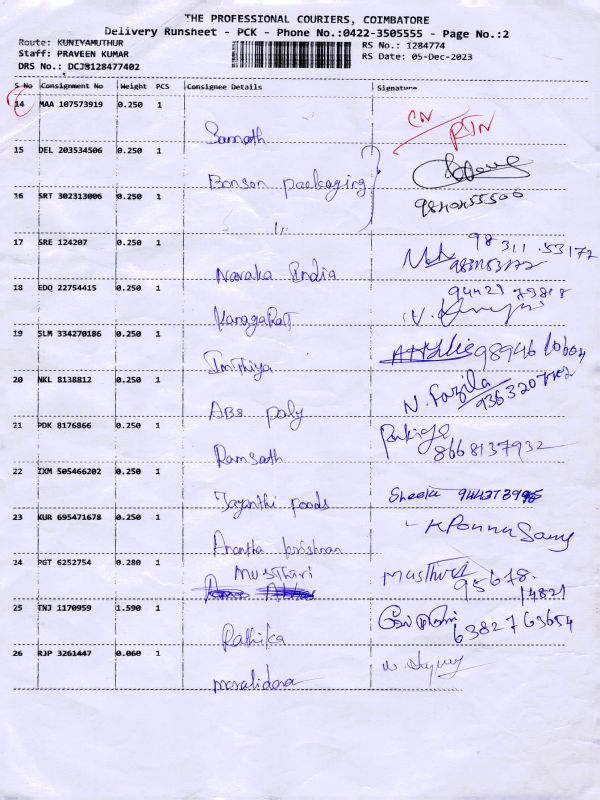 THE PROFESSIONAL COURIERS, COIMBATORE
Delivery Runsheet - PCK - Phone No.:0422-3505555 - Page No.:2
Route: KUNIYAMUTHUR
Staff: PRAVEEN KUMAR
DRS No.: DCJS128477402
RS No.: 1284774
RS Date: 05-Dec-2023
S No Consignment No Weight PCS Consignee Details Signature
14 MAA 107573919 0.250 1
CN RTN
15 DEL 203534506 0.250 1
Bonson packaging
16 SRT 302313006 0.250 1
17 SRE 124207 0.250 1
Navaka India
98 311 53172
18 EDQ 22754415 0.250 1
19 SLM 334270186 0.250 1
Imithiya
20 NKL 8138812 0.250 1
ABS poly
N. Fazila
21 PDK 8176866 0.250 1
Ramsath
8668137932
22 IXM 505466202 0.250 1
Jayanthi foods
Sheela
23 KUR 695471678 0.250 1
Anantha krishnan
K Ponnu Samy
24 PGT 6252754 0.280 1
Musthari
95678.
14821
25 TNJ 1170959 1.590 1
Rathika
63827 63654
26 RJP 3261447 0.060 1